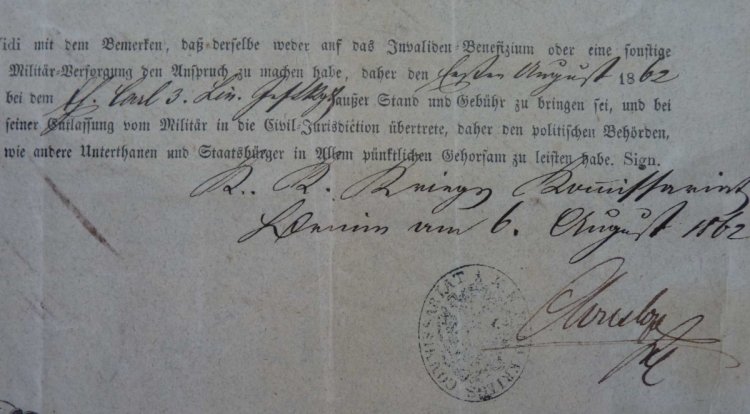 mit dem Bemerken, daß derselbe weder auf das Invaliden-Benefizium oder eine sonstige
Militär-Versorgung den Anspruch zu machen habe, daher den ersten August 1862
bei dem Carl 3. Lin. außer Stand und Gebühr zu bringen sei, und bei
seiner Entlassung vom Militär in die Civil-Jurisdiction übertrete, daher den politischen Behörden,
wie andere Unterthanen und Staatsbürger in Allem pünktlichen Gehorsam zu leisten habe. Sign.
K. K. Kriegs Kommissariat
am 6. August 1862